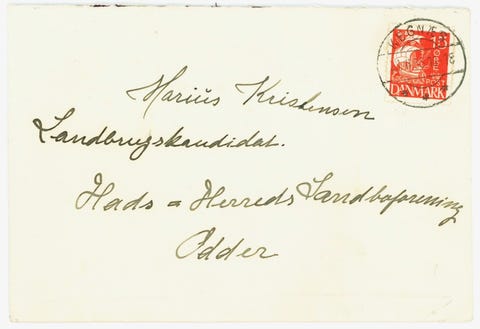 15
POST
DANMARK
Marius Kristensen
Landbrugskandidat.
Hads = Herreds Landboforening
Odder